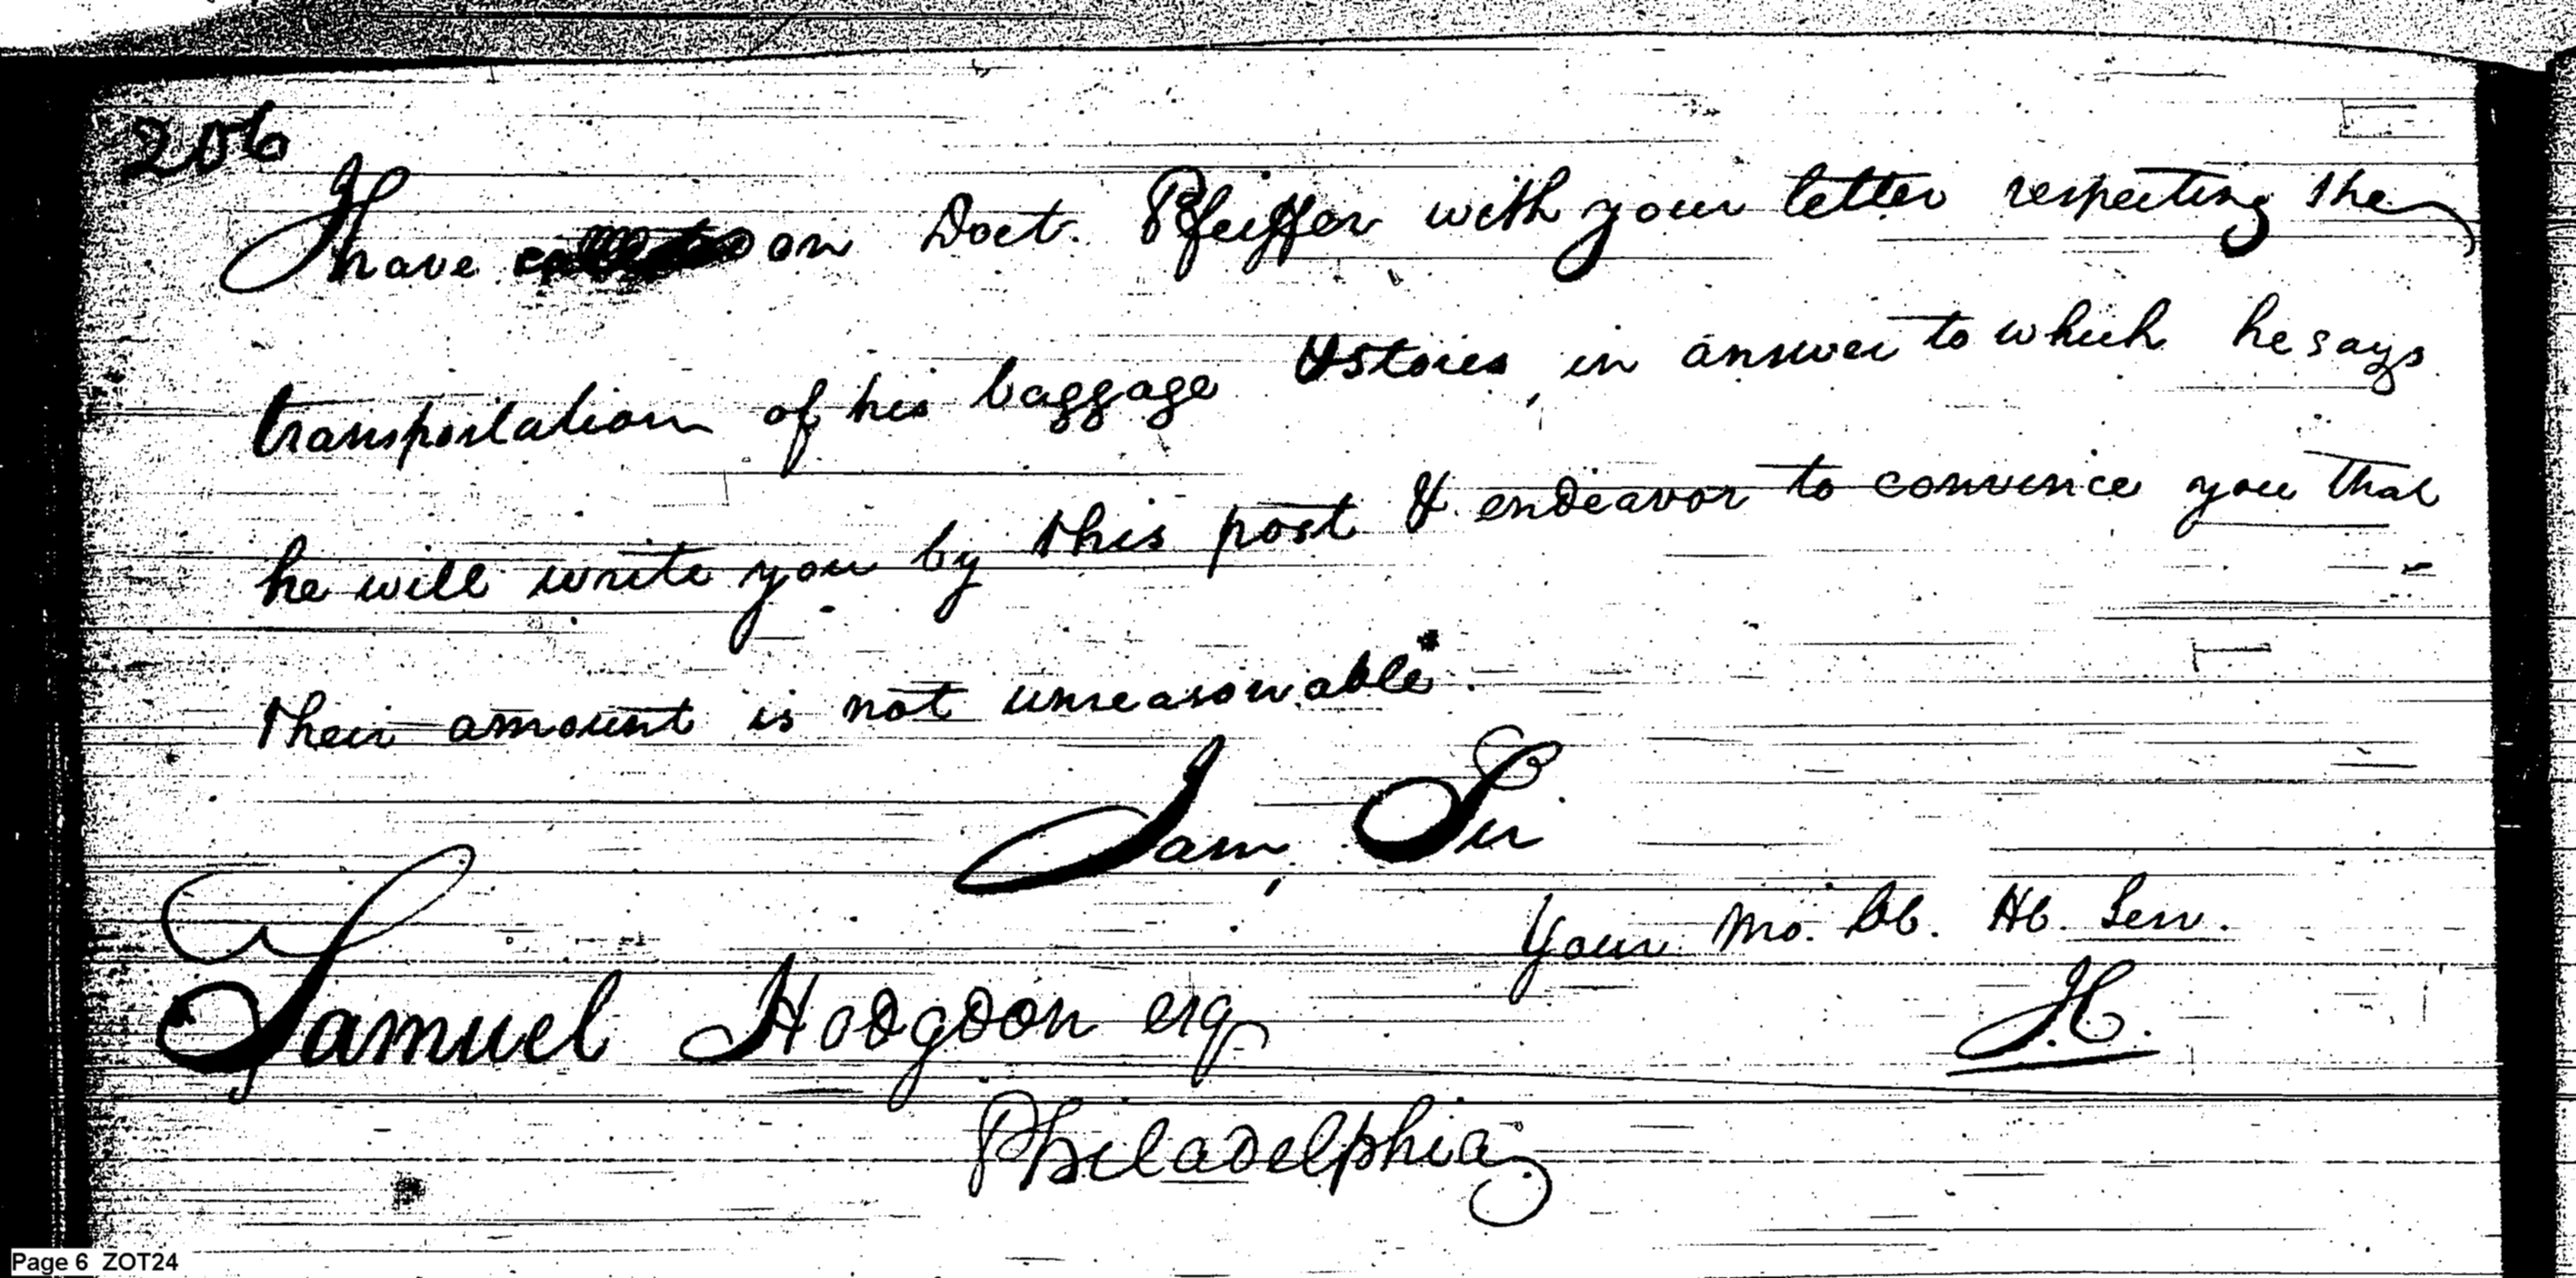 206
I have called on Doct. Pfeiffer with your letter respecting the
transportation of his baggage & stores, in answer to which he says
he will write you by this post & endeavor to convince you that
their amount is not unreasonable.
I am, Sir
Your Mo. Ob. Hb. Serv.
H.
Samuel Hodgdon esq
Philadelphia
Page 6 ZOT24